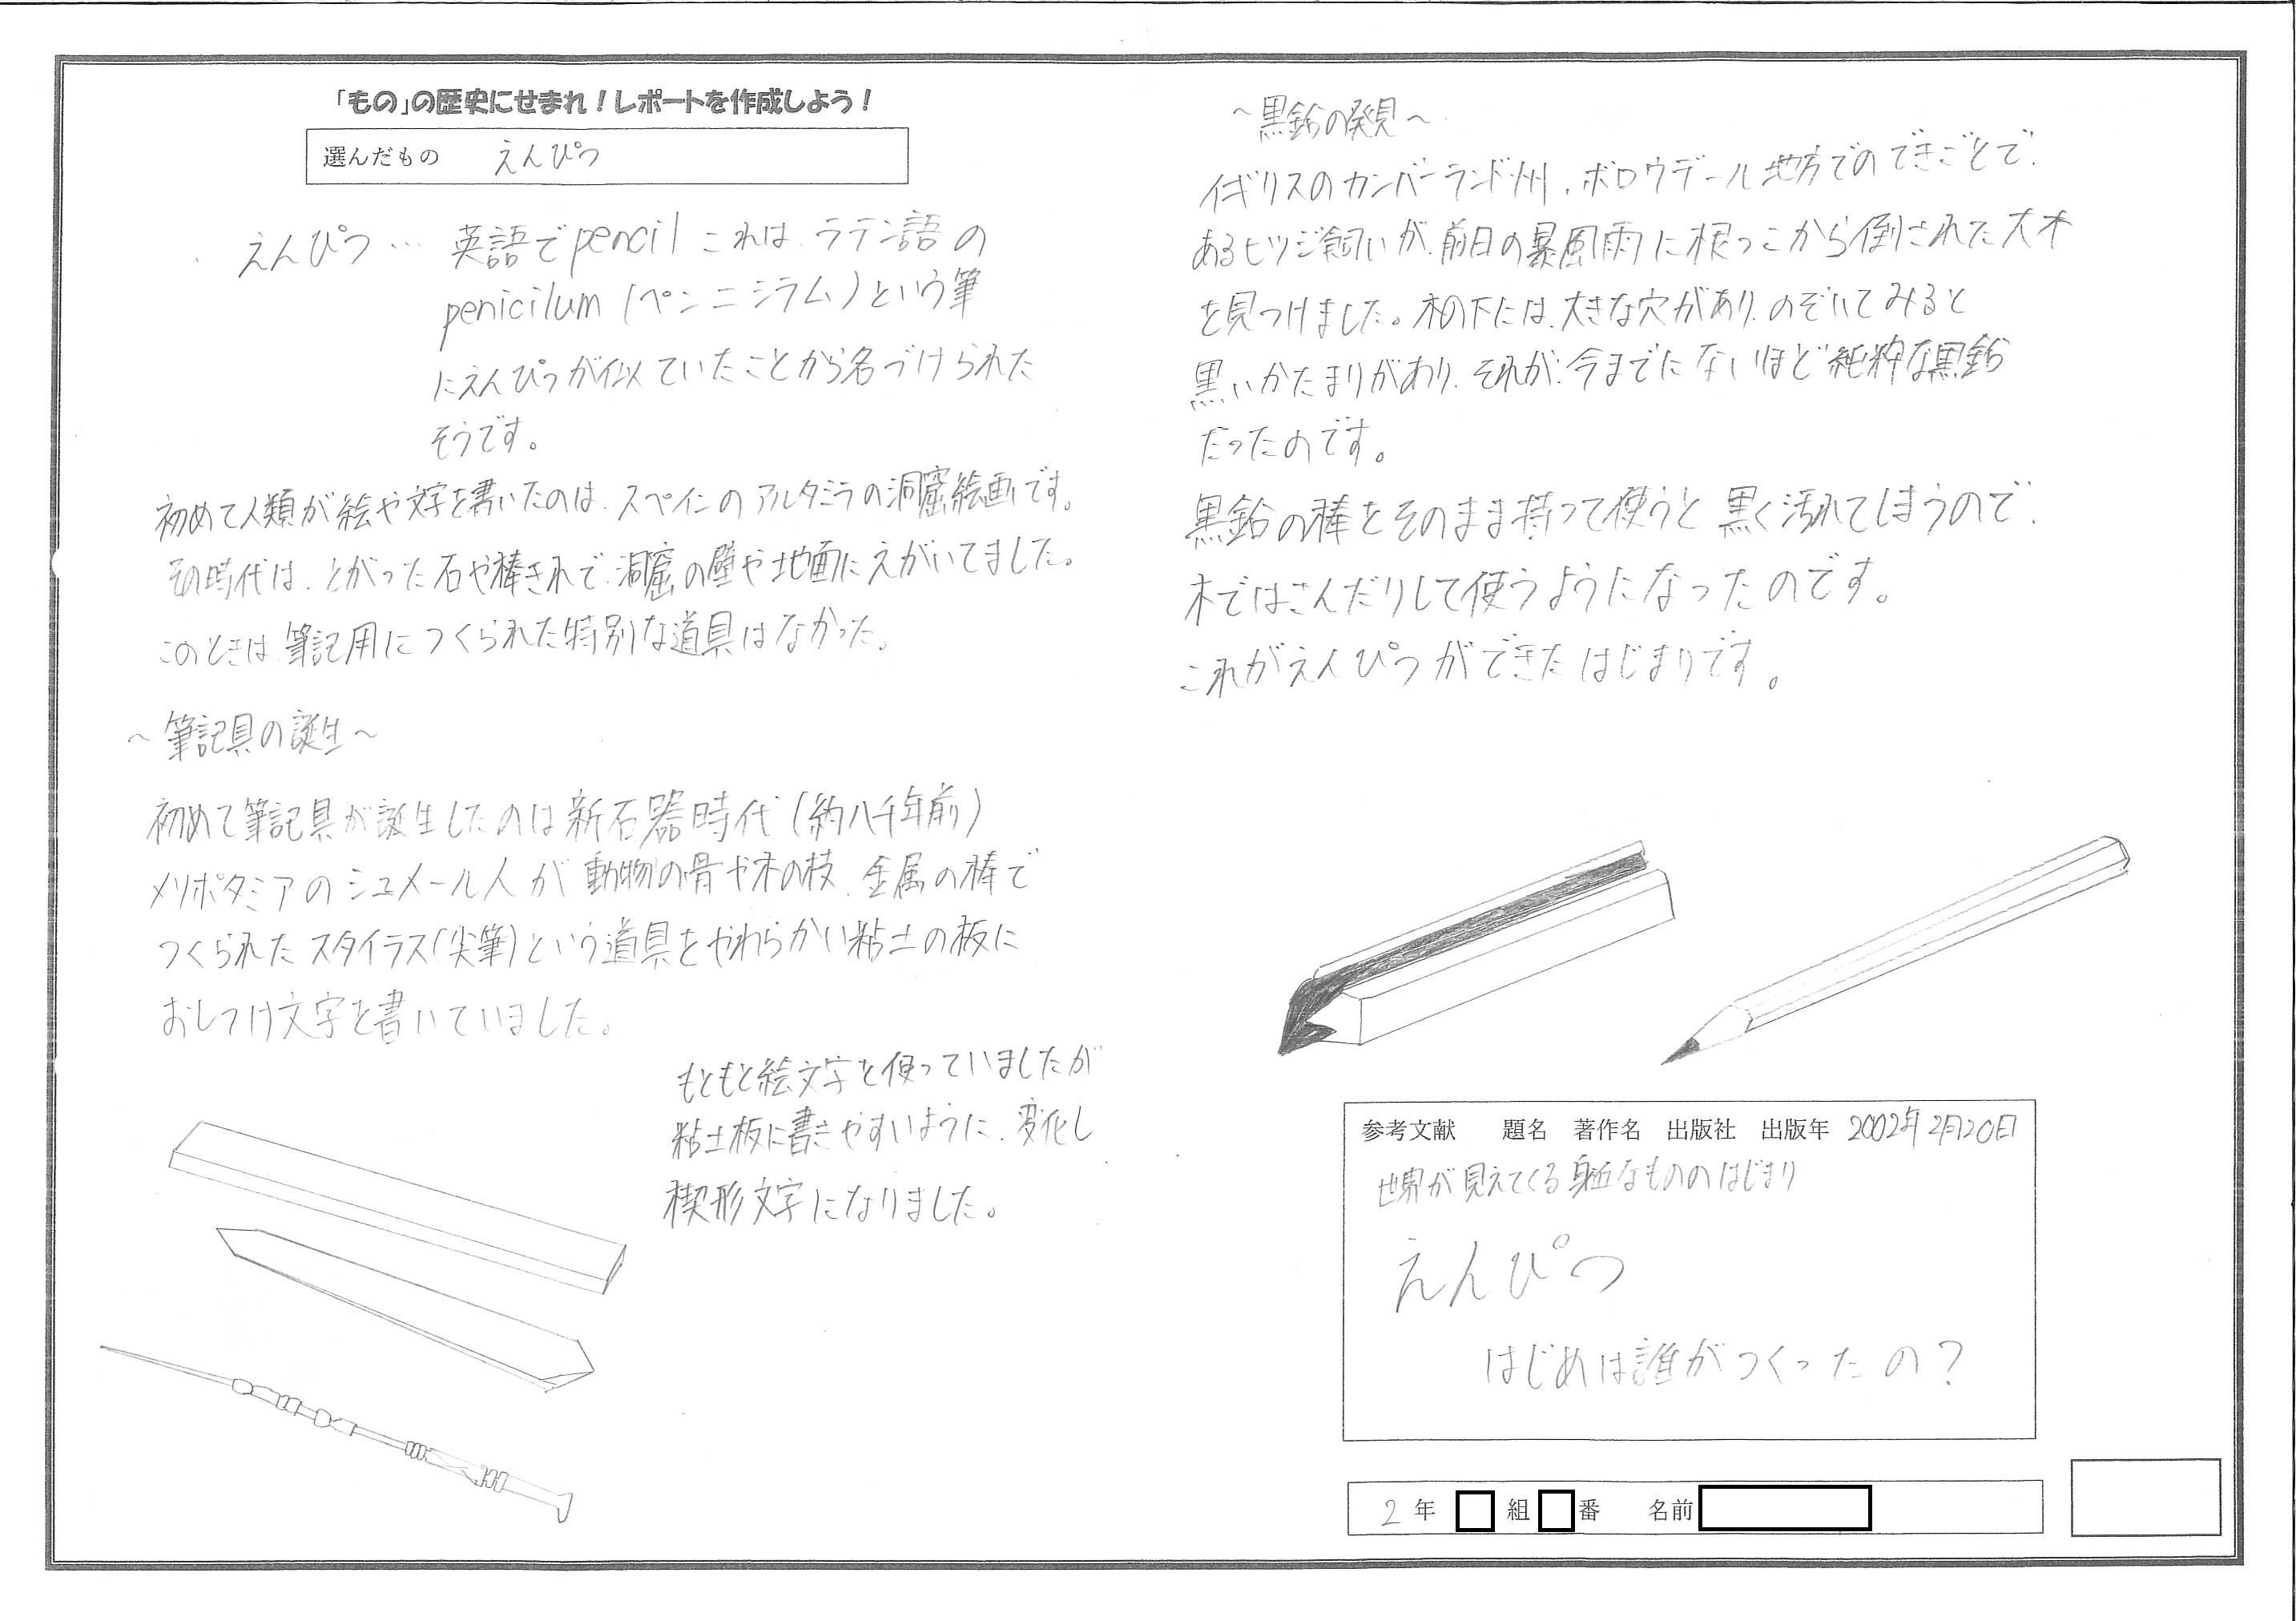 「もの」の歴史にせまれ！レポートを作成しよう！
選んだもの えんぴつ
えんぴつ… 英語でpencil これは、ラテン語の
penicilum (ペンニシラム)という筆
にえんぴつが似ていたことから名づけられた
そうです。
初めて人類が絵や文字を書いたのは、スペインのアルタミラの洞窟絵画です。
その時代は、とがった石や棒きれで、洞窟の壁や地面にえがいてました。
このときは、筆記用につくられた特別な道具はなかった。
～筆記具の誕生～
初めて筆記具が誕生したのは新石器時代(約八千年前)
メソポタミアのシュメール人が動物の骨や木の枝、金属の棒で
つくられたスタイラス(尖筆)という道具をやわらかい粘土の板に
おしつけ文字を書いていました。
もともと絵文字を使っていましたが
粘土板に書きやすいように、変化し
楔形文字になりました。
～黒鉛の発見～
イギリスのカンバーランド州、ボロウデール地方でのできごとで、
あるヒツジ飼いが、前日の暴風雨に根っこから倒された大木
を見つけました。木の下には、大きな穴があり、のぞいてみると
黒いかたまりがあり、それが、今までにないほど純粋な黒鉛
だったのです。
黒鉛の棒をそのまま持って使うと黒く汚れてしまうので、
木ではさんだりして使うようになったのです。
これがえんぴつができたはじまりです。
参考文献 題名 著作名 出版社 出版年 2002年2月20日
世界が見えてくる身近なもののはじまり
えんぴつ
はじめは誰がつくったの？
2年 組 番 名前